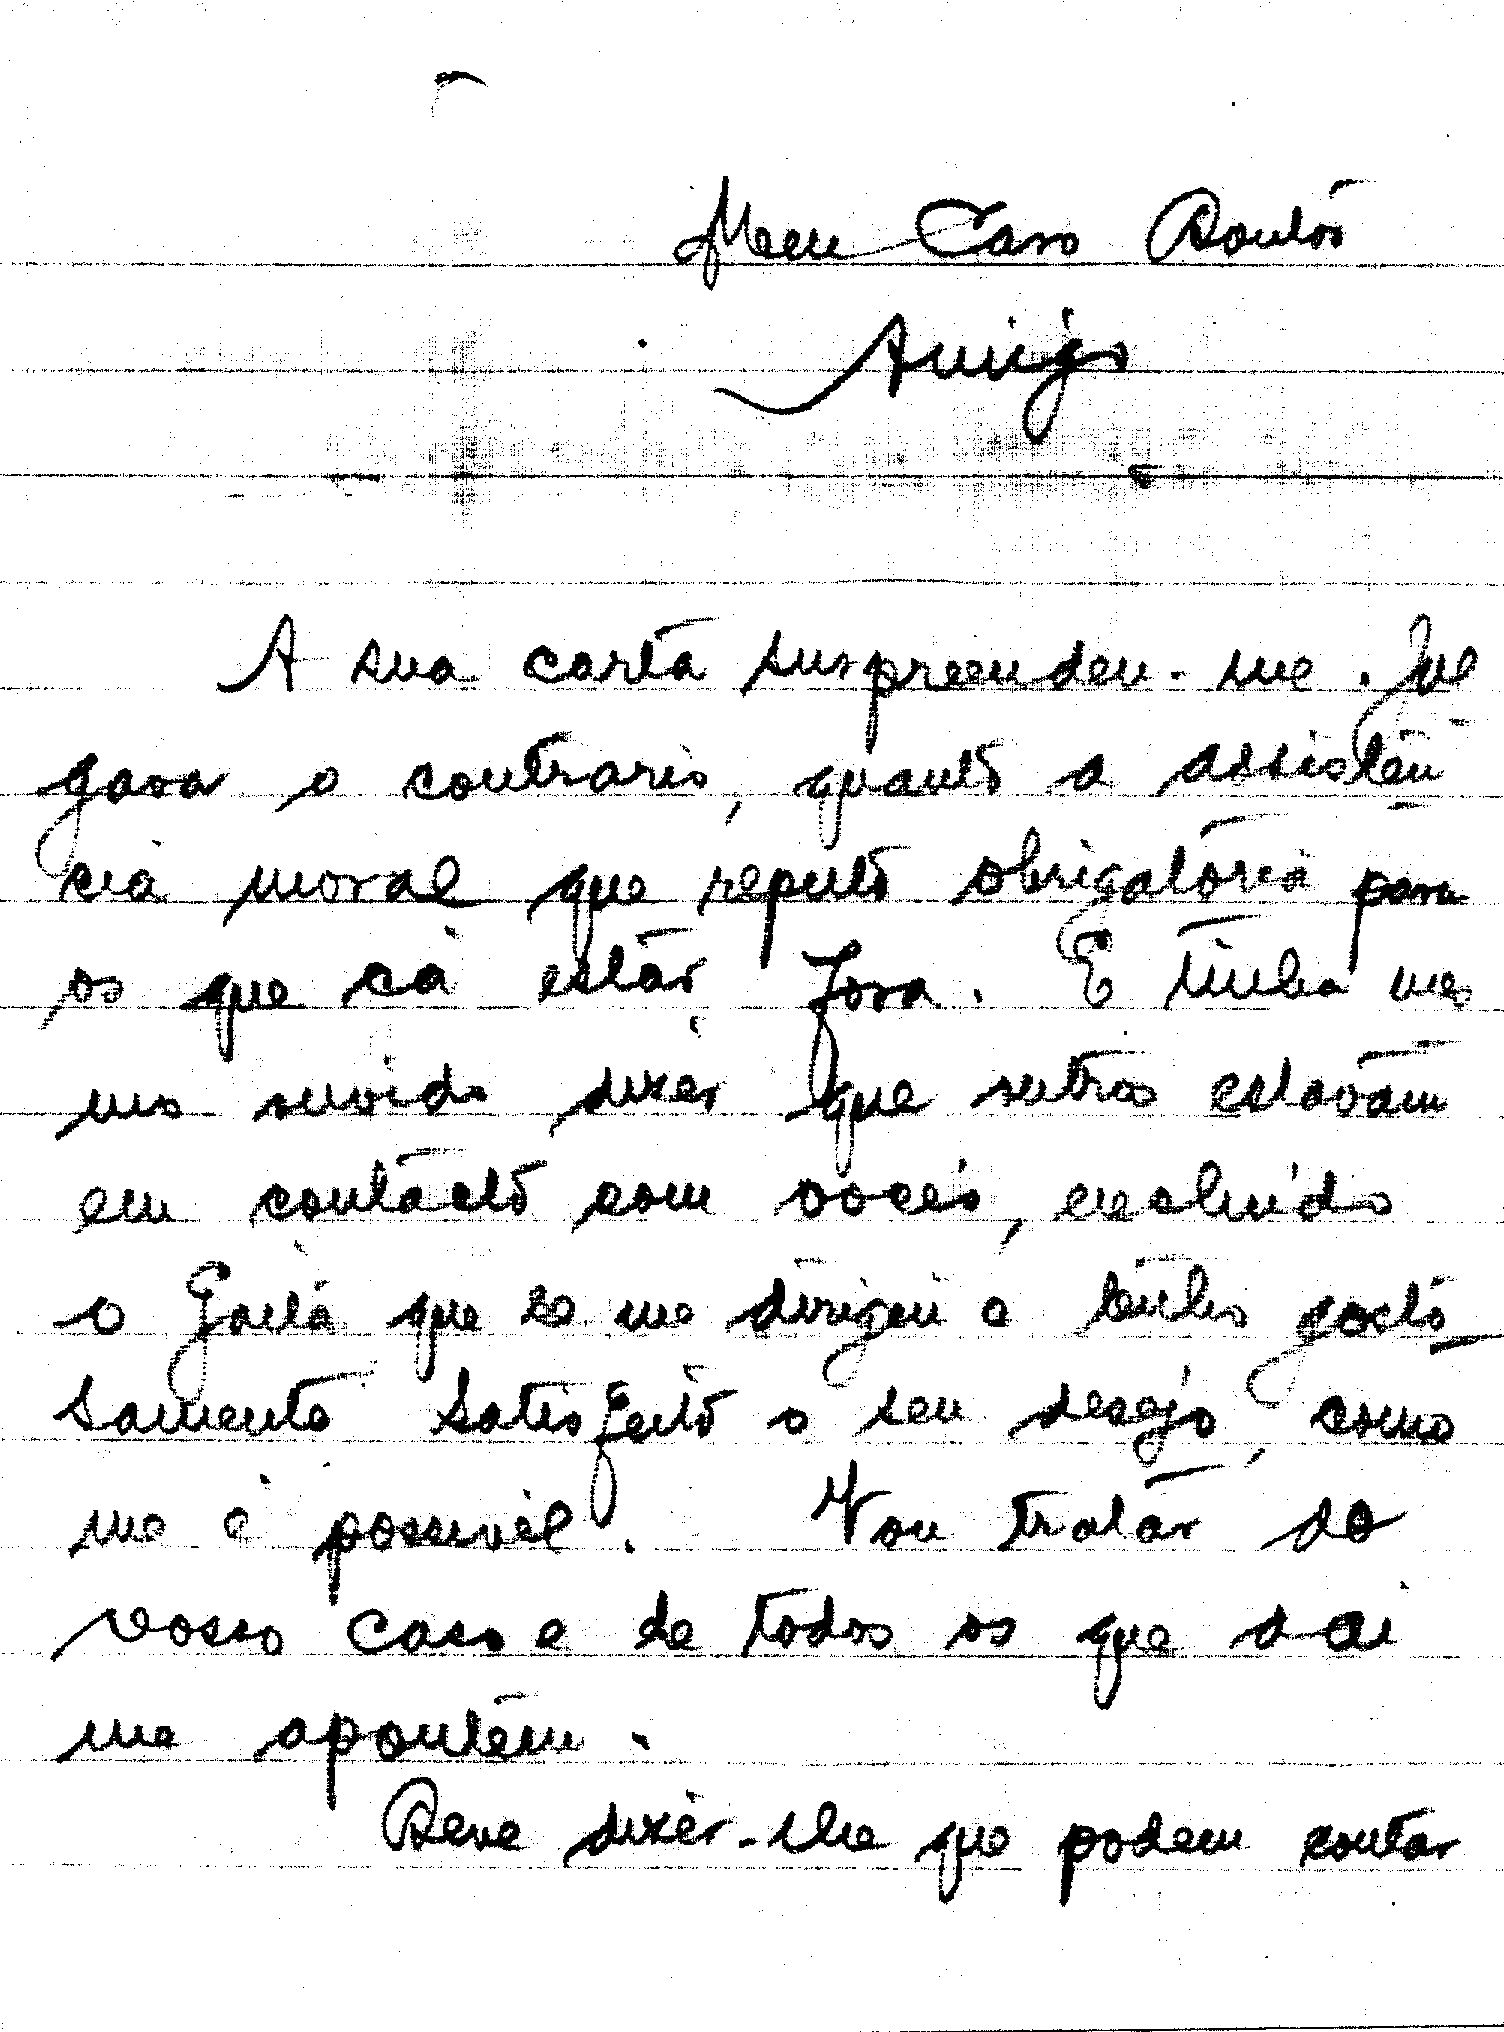 Meu Caro Doutor
Amigo
A sua carta surpreendeu-me. Jul
gava o contrario, quanto a assistên
cia moral que reputo obrigatória para
os que cá estar fora. E tinha mes
mo ouvido dizer que outros estavam
em contacto com vocês, excluido
o Gaita que se me dirigiu e tenho gosto
samente satisfeito o seu desejo, como
me é possivel. Vou tratar do
vosso caso e de todos os que daí
me apontem.
Devo dizer-lhe que podem contar